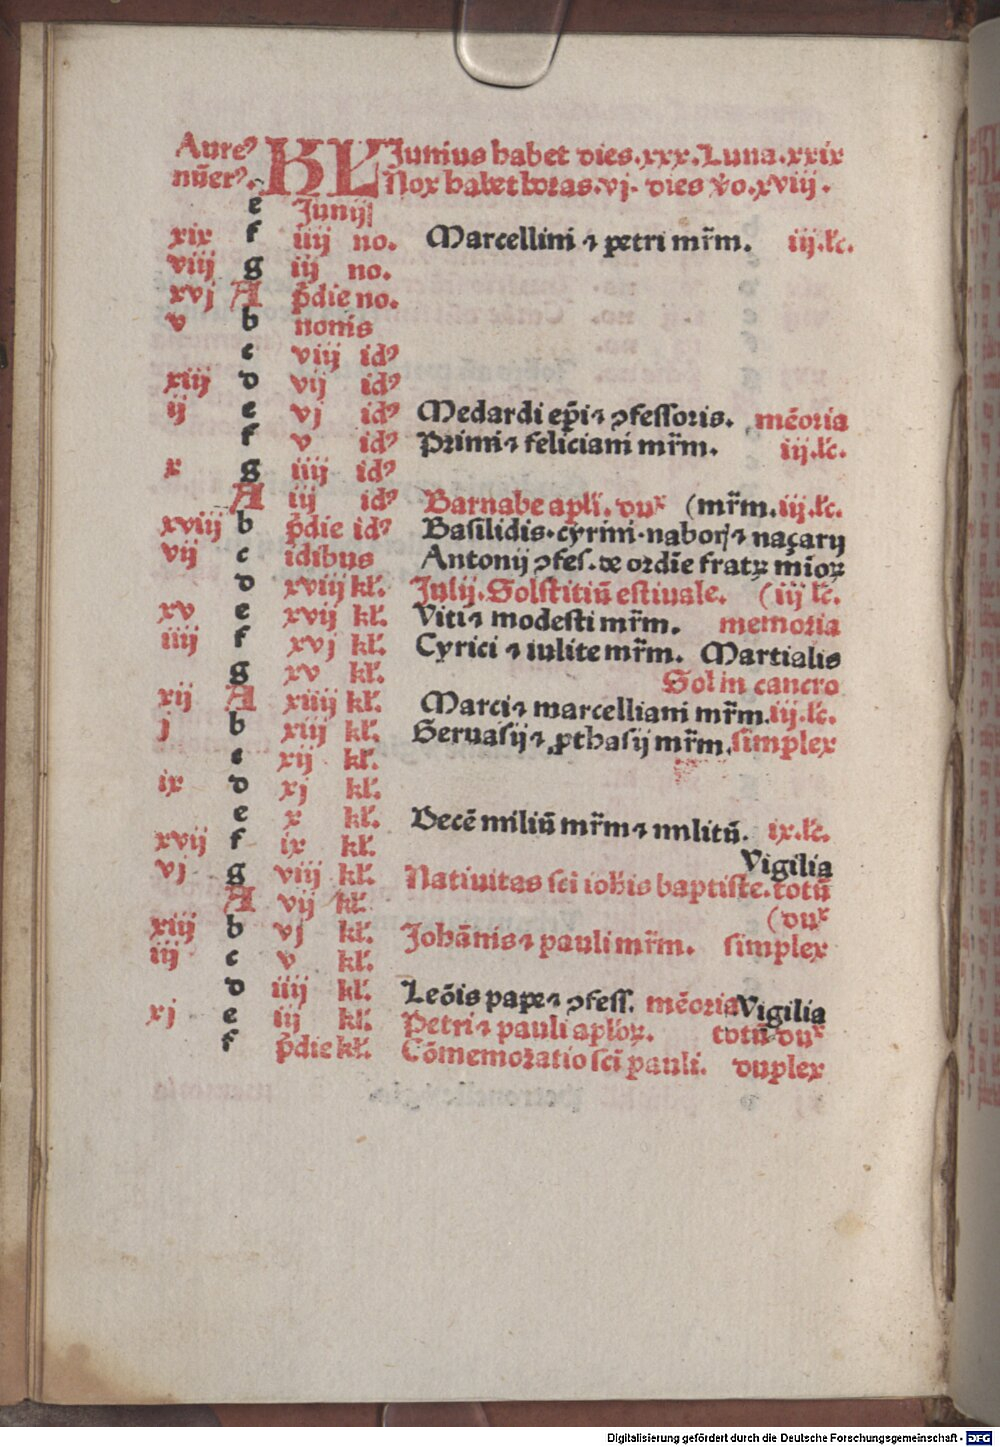 Aureꝰ KL Junius habet dies.xxx.Luna.xxix
nūerꝰ. Nox habet horas.vj. dies v̊o.xviij.
e Junij
xix f iiij no. Marcellini ⁊ petri mr̄m. iij.lc̄.
viij g iij no.
xvj A p̄die no.
v b nonis
c viij idꝰ
xiij d vij idꝰ
ij e vj idꝰ Medardi ep̄i ⁊ ꝯfessoris. mēoria
f v idꝰ Primi ⁊ feliciani mr̄m. iij.lc̄.
x g iiij idꝰ
A iij idꝰ Barnabe apl̄i. dux (mr̄m.iij.lc̄.
xviij b p̄die idꝰ Basilidis.cyrini.naborj ⁊ naçarij
vij c idibus Antonij ꝯfes.de ordīe fratꝝ mīoꝝ
d xviij kl̄. Julij.Solstitiū estiuale. (iij lc̄.
xv e xvij kl̄. Viti ⁊ modesti mr̄m. memoria
iiij f xvj kl̄. Cyrici ⁊ iulite mr̄m. Martialis
g xv kl̄. Sol in cancro
xij A xiiij kl̄. Marci ⁊ marcelliani mr̄m.iij.lc̄.
j b xiij kl̄. Geruasij ⁊ ꝓthasij mr̄m.simplex
c xij kl̄.
ix d xj kl̄.
e x kl̄. Decē miliū mr̄m ⁊ militū. ix.lc̄.
xvij f ix kl̄. Vigilia
vj g viij kl̄. Natiuitas sci iohīs baptiste.totū
A vij kl̄. (dux
xiij b vj kl̄. Johānis ⁊ pauli mr̄m. simplex
iij c v kl̄.
d iiij kl̄. Leōis pape ⁊ ꝯfess. mēoria Vigilia
xj e iij kl̄. Petri ⁊ pauli apl̄oꝝ. totū dux
f p̄die kl̄. Cōmemoratio sci pauli. duplex
Digitalisierung gefördert durch die Deutsche Forschungsgemeinschaft - DFG